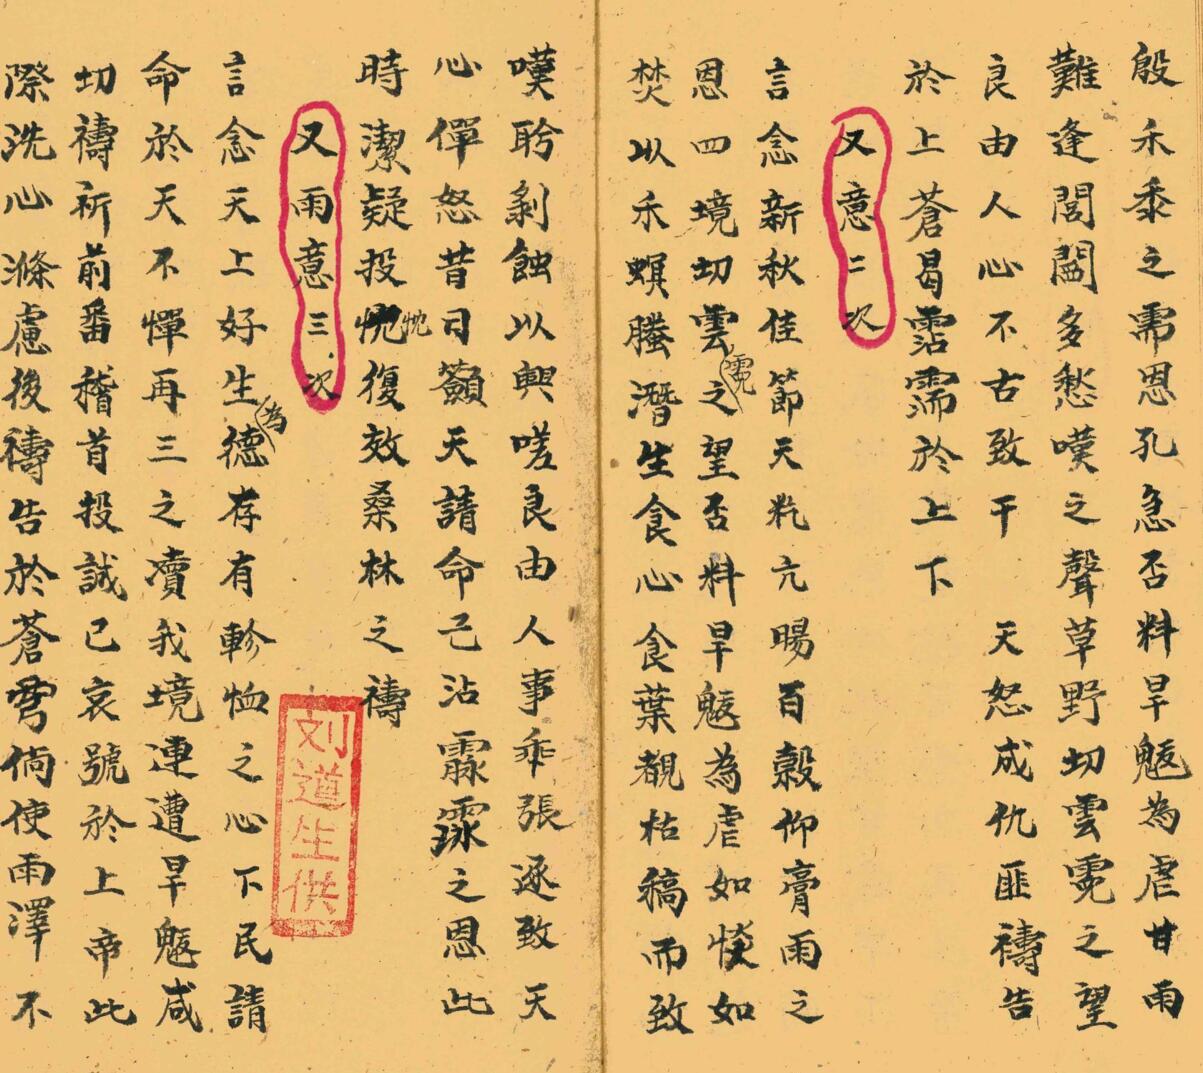 殷禾黍之需恩孔急否料旱魃為虐甘雨
難逢閭閻多愁嘆之聲草野切雲霓之望
良由人心不古致干　天怒成仇匪禱告
於上蒼曷霑濡於上下
又意二次
言念新秋佳節天炁亢暘百穀仰膏雨之
恩四境切雲霓之望否料旱魃為虐如惔如
焚以禾螟螣潛生食心食葉覩枯稿而致
嘆聆剝蝕以興嗟良由人事乖張逐致天
心僤怒昔日籲天請命已沾霢霂之恩此
時潔疑投忱忱復效桑林之禱
又雨意三次
言念天上好生為德存有軫恤之心下民請
命於天不憚再三之凟我境連遭旱魃咸
切禱祈前番稽首投誠已哀號於上帝此
際洗心滌慮後禱告於蒼穹倘使雨澤不
刘道生供